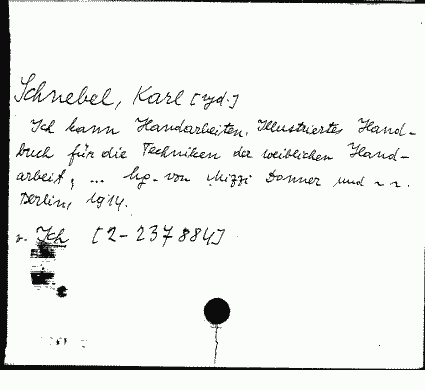 Schnebel, Karl [wyd.]
Ich kann Handarbeiten. Illustriertes Hand-
buch für die Techniken der weiblichen Hand-
arbeit, ... hg. von Mizzi Donner und
Berlin, 1914.
z. Ich [2-237884]